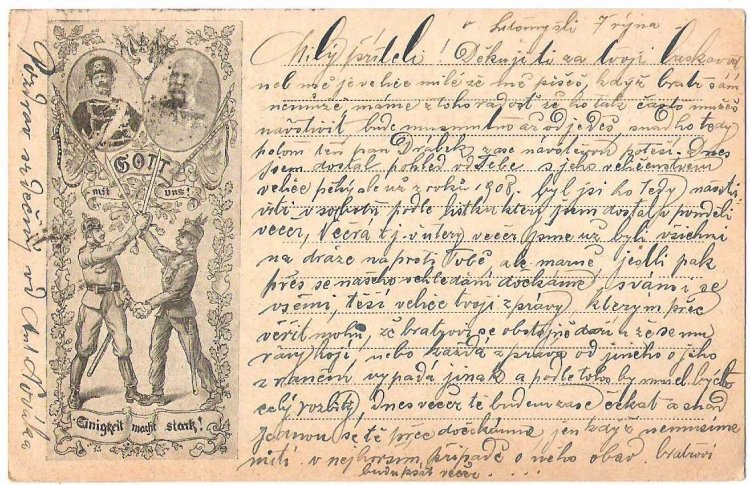 v Litomyšli 7 října
Milý příteli! Děkuji ti za tvoji laskavost
neb mě je velice milé že mě píšeš, když bratr sám
nemůže, máme z toho radost že ho tak často můžeš
navštívit, bude mu smutno až odjedeš snad ho tedy
potom ten pan Drábek zase návštěvou potěší. Dnes
jsem dostal pohled od Tebe s jeho veličenstvem
velice pěkný ale už z roku 1908. byl jsi ho tedy navští
vit v sobotu podle lístku který jsem dostal v pondělí
večer, Včera t.j. v úterý večer jsme už byli všichni
na dráze naproti Tobě ale marně jestli pak
přes se našeho shledání dočkáme s vámi se
všemi, těší velice tvoji zprávy kterým přec
věřit mohu, že bratrovi se obstojně daří a že se mu
rány hojí, nebo každá zpráva od jiného o jeho
zranění vypadá jinak a podle toho by musel být
celý rozbitý, dnes večer tě budem zase čekat a snad
jednou se tě přec dočkáme jen když nemusíme
míti v nejhorším případě o něho obav. bratrovi
budu psát večer
GOTT
mit uns!
Einigkeit macht stark!
Pozdrav srdečný od